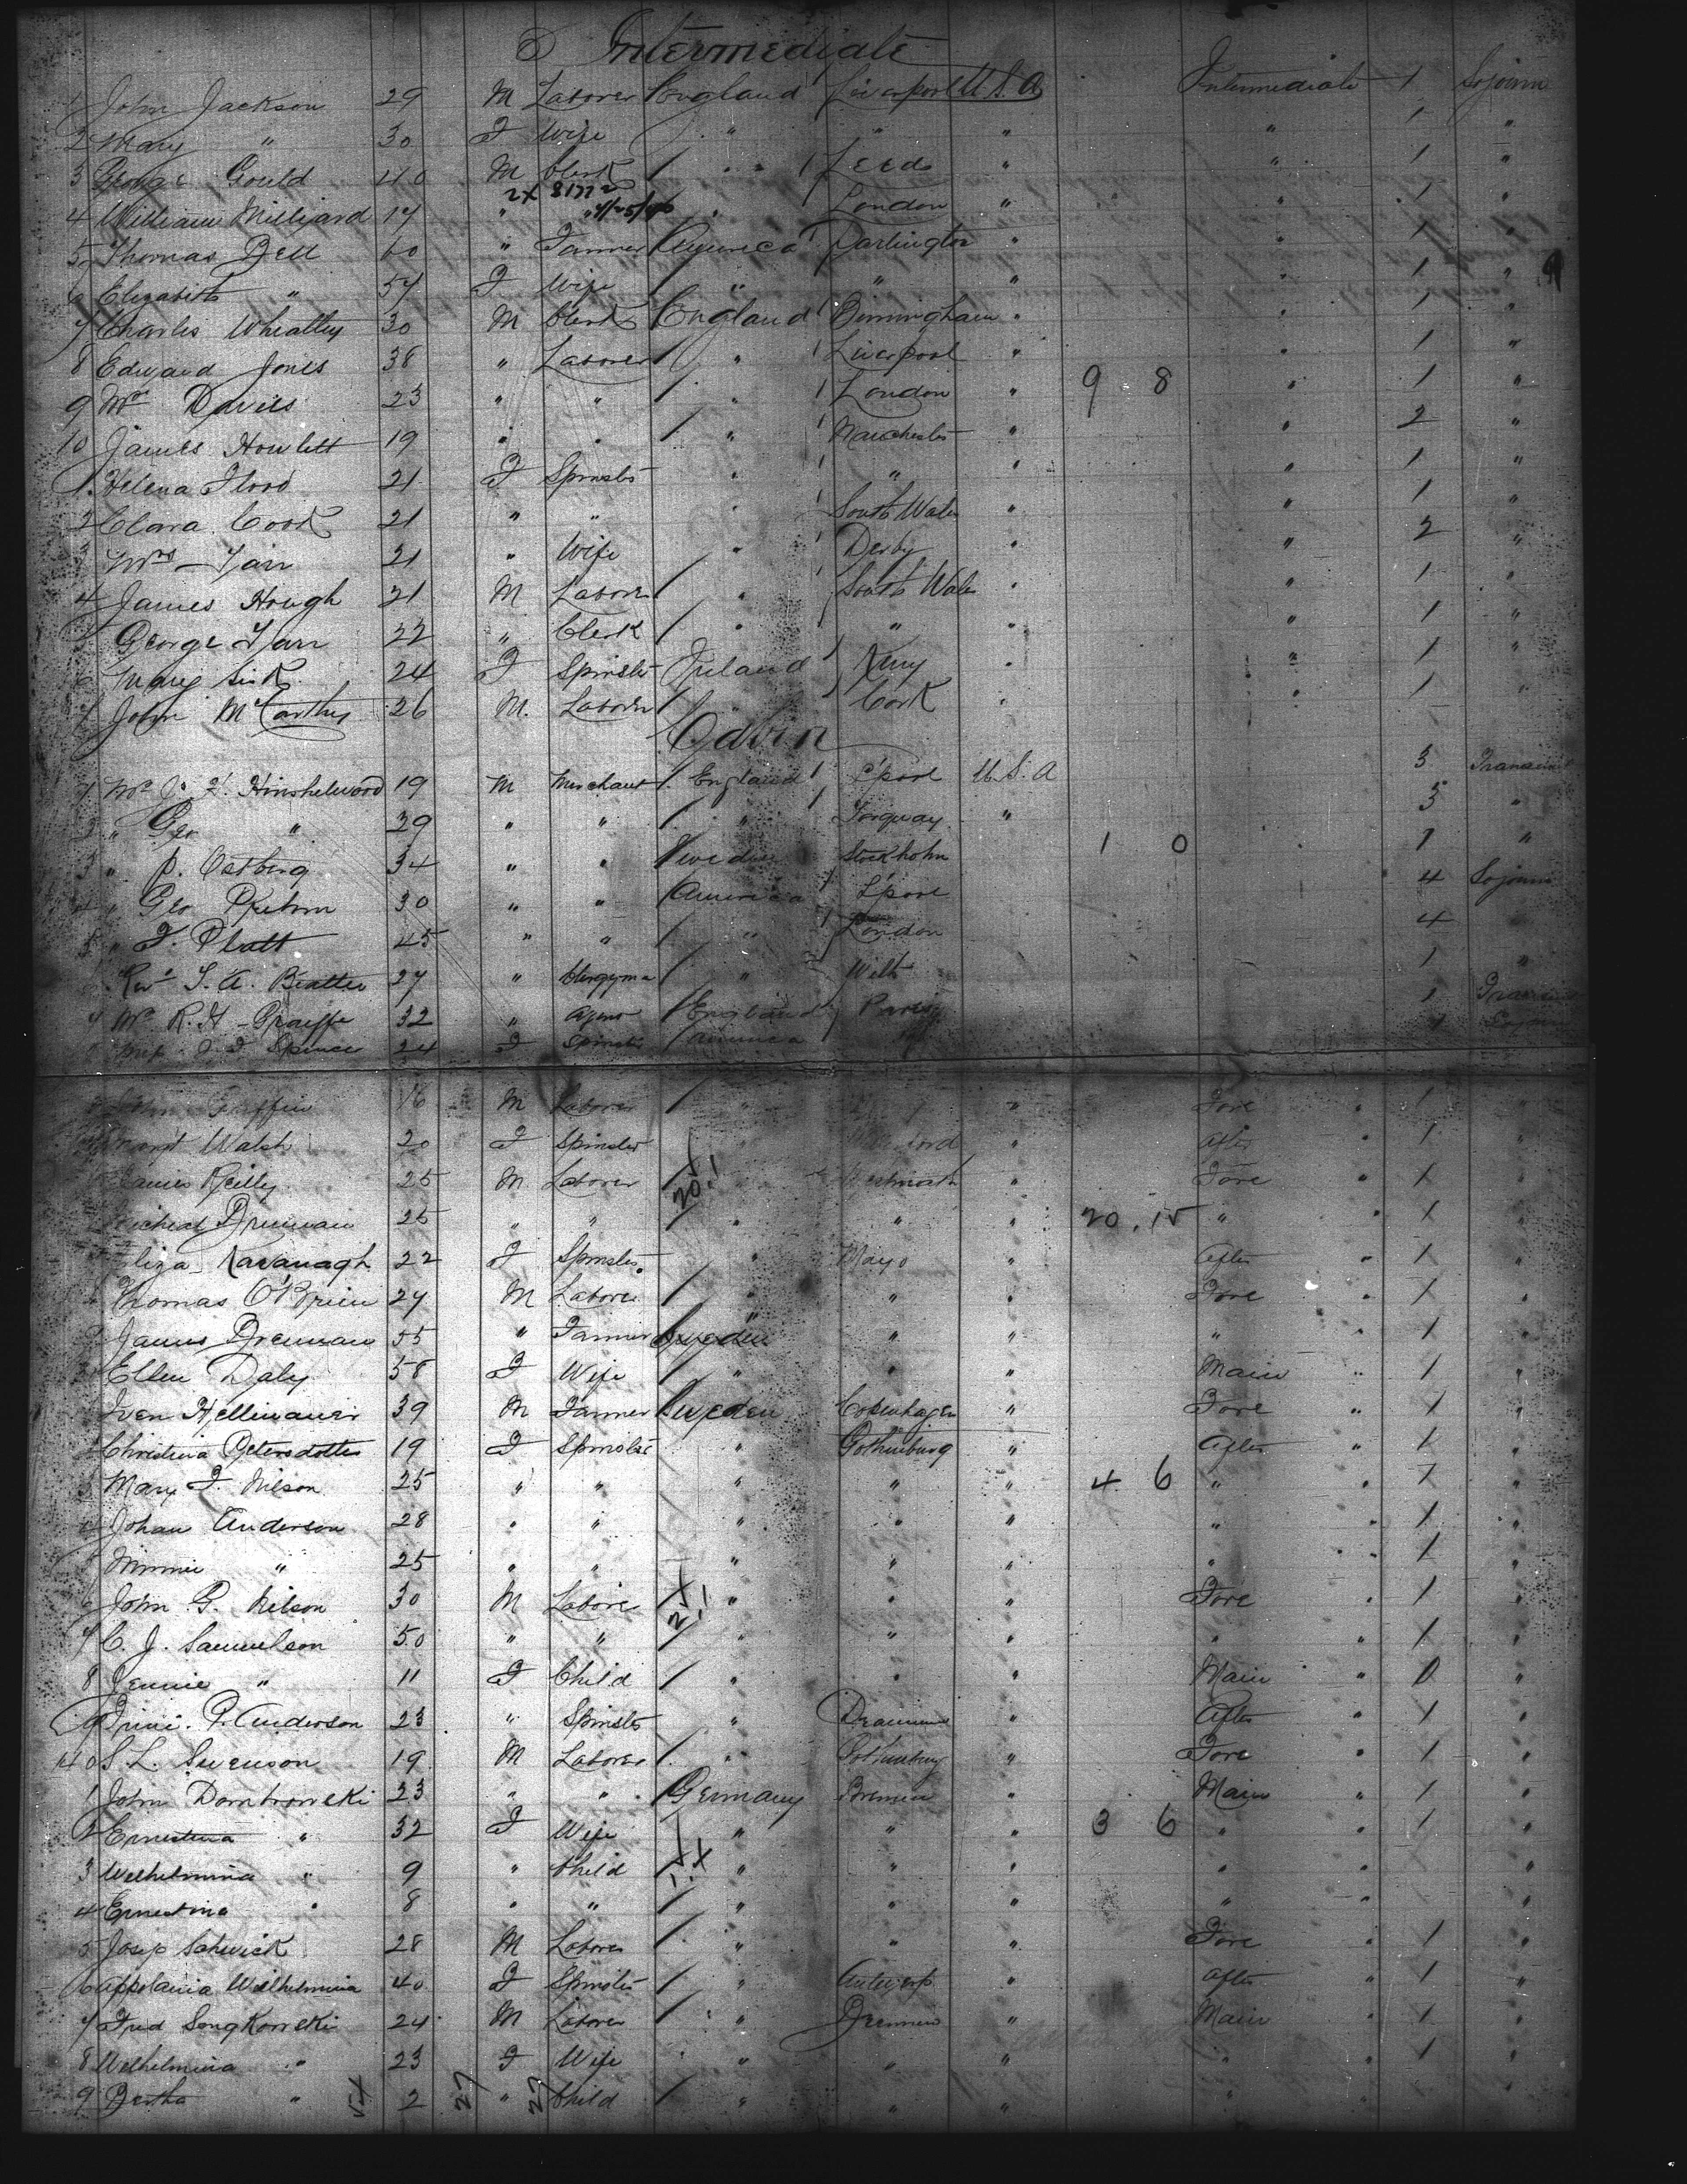 Intermediate
1 John Jackson 29 M Laborer England Liverpool U.S.A Intermediate 1 Sojourn
2 Mary " 30 F Wife " " " " 1 "
3 George Gould 40 M Clerk " Leeds " " 1 "
2x 81772
4 William 17 " " 4/25/46 " London " " 1 "
5 Thomas Bell 60 " Farmer America Darlington " " 1 "
6 Elizabeth " 57 F Wife " " " " 1 "
7 Charles Wheatley 30 M Clerk England Birmingham " " 1 "
8 Edward Jones 38 " Laborer " Liverpool " " 1 "
9 Mr Davies 23 " " " London " 9 8 " 1 "
10 James Howlett 19 " " " Manchester " " 2 "
1 Helena Flood 21 F Spinster " " " " 1 "
2 Clara Cook 21 " " " South Wales " " 1 "
3 Mrs 21 " Wife " Derby " " 2 "
4 James Hough 21 M Laborer " South Wales " " 1 "
5 George 22 " Clerk " " " " 1 "
6 Mary Sisk 24 F Spinster Ireland Kerry " " 1 "
7 John McCarthy 26 M. Laborer " Cork " " 1 "
Cabin
1 Mr J. Hinshelwood 19 M Merchant England L'pool U.S.A 3
2 " Geo " 29 " " " Torquay " 3 "
3 " P. Ostberg 34 " " Sweden Stockholm 1 0 1 "
4 " Geo 30 " " America L'pool 4 Sojourn
5 " F. Platt 45 " " " London 4 "
Revd S. A. Beattie 27 " Clergyman " 1 "
Mr R. H. Graeffe 32 " Agent England Paris 1
Spence 24 F Spinster America 1
John Griffin 16 M Laborer " " Fore " 1 "
Margt Walsh 20 F Spinster " After " 1 "
James Reilly 25 M Laborer Westmeath " Fore " 1 "
20.1
Michael Brennan 25 " " " " " 20.15 " " 1 "
Eliza Kavanagh 22 F Spinster " Mayo " After " 1 "
Thomas O'Brien 27 M Laborer " " " Fore " 1 "
James Brennan 55 " Farmer Sweden " " " " 1 "
Ellen Daly 58 F Wife " " " Main " 1 "
Iven 39 M Farmer Sweden Copenhagen " Fore " 1 "
Christina Petersdotter 19 F Spinster " Gothenburg " After " 1 "
3 Mary F. Nilson 25 " " " " " 4 6 " " 1 "
4 Johan Anderson 28 " " " " " " " 1 "
5 Minnie " 25 " " " " " " " 1 "
6 John G. Nelson 30 M Laborer " " " Fore " 1 "
2.1
7 C. J. Samuelson 50 " " " " " " " 1 "
8 Jennie " 11 F Child " " " Main " 0 "
9 P. Anderson 23 " Spinster " " After " 1 "
140 S. L. Swenson 19 M Laborer " Gothenburg " Fore " 1 "
1 John Dombrowski 23 " " Germany Bremen " Main " 1 "
2 Ernestina " 32 F Wife " " " 3 6 " " 1 "
3 Wilhelmina " 9 " Child " " " " " "
4 Ernestina " 8 " " " " " " " "
5 Josep Schwick 28 M Laborer " " " Fore " 1 "
6 Appolania Wilhelmina 40 F Spinster " Antwerp " After " 1 "
7 Fred Songkowski 24 M Laborer " Bremen " Main " 1 "
8 Wilhelmina " 23 F Wife " " " " " 1 "
9 Bertha " 2 " Child " " " " " "